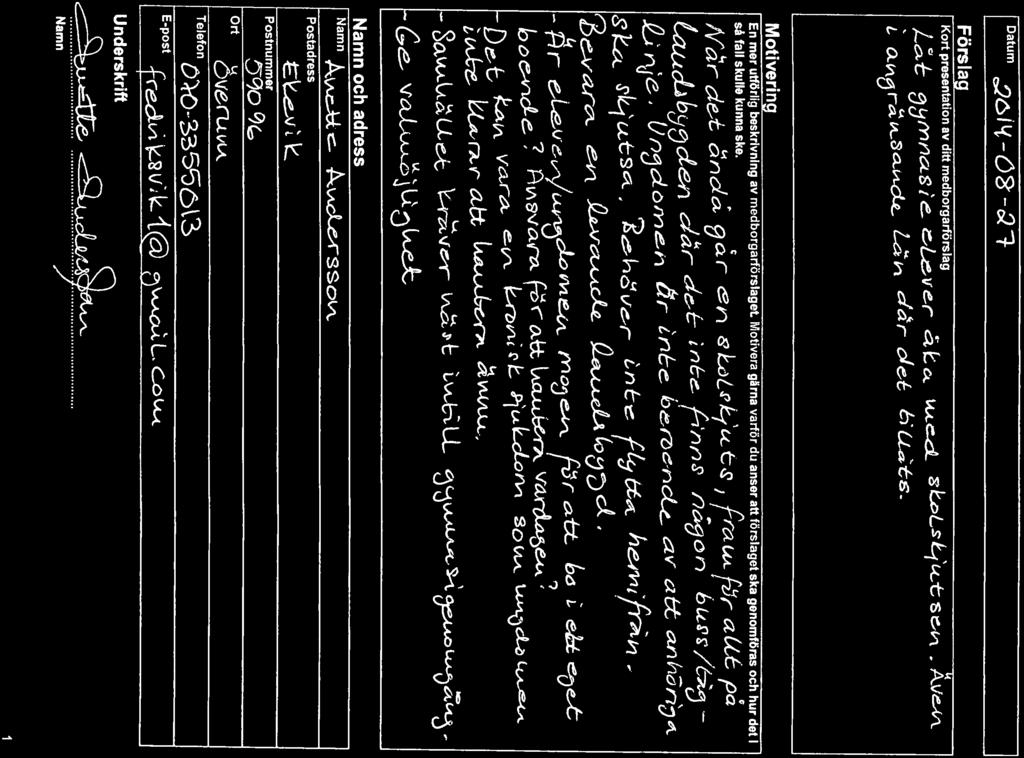 Datum 2014-08-27
Förslag
Kort presentation av ditt medborgarförslag
Låt gymnasie elever åka med skolskjutsen. Även
i angränsande Län där det tillåts.
Motivering
En mer utförlig beskrivning av medborgarförslaget. Motivera gärna varför du anser att förslaget ska genomföras och hur det i
så fall skulle kunna ske.
När det ändå går en skolskjuts, framför allt på
landsbygden där det inte finns någon buss/tåg-
linje. Ungdomen är inte beroende av att anhöriga
ska skjutsa. Behöver inte flytta hemifrån.
Bevara en levande landsbygd.
- Är eleven/ungdomen mogen för att bo i ett eget
boende? Ansvara för att hantera vardagen?
- Det kan vara en kronisk sjukdom som ungdomen
inte klarar att hantera ännu.
- Samhället kräver näst intill gymnasigenomgång.
- Ge valmöjlighet
Namn och adress
Namn Anette Andersson
Postadress Ekevik
Postnummer 590 96
Ort Överum
Telefon 070-3355013
E-post fredriksvik1@gmail.com
Underskrift
Anette Andersson
Namn
1